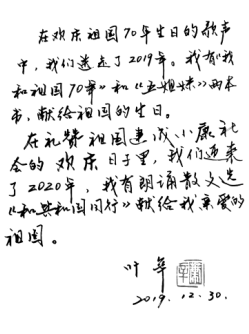 在欢庆祖国70年生日的歌声
中，我们送走了2019年。我有《我
和祖国70年》和《五姐妹》两本
书，献给祖国的生日。
在礼赞祖国建成小康社
会的欢庆日子里，我们迎来
了2020年，我有朗诵散文选
《和共和国同行》献给我亲爱的
祖国。
叶华
2019.12.30.